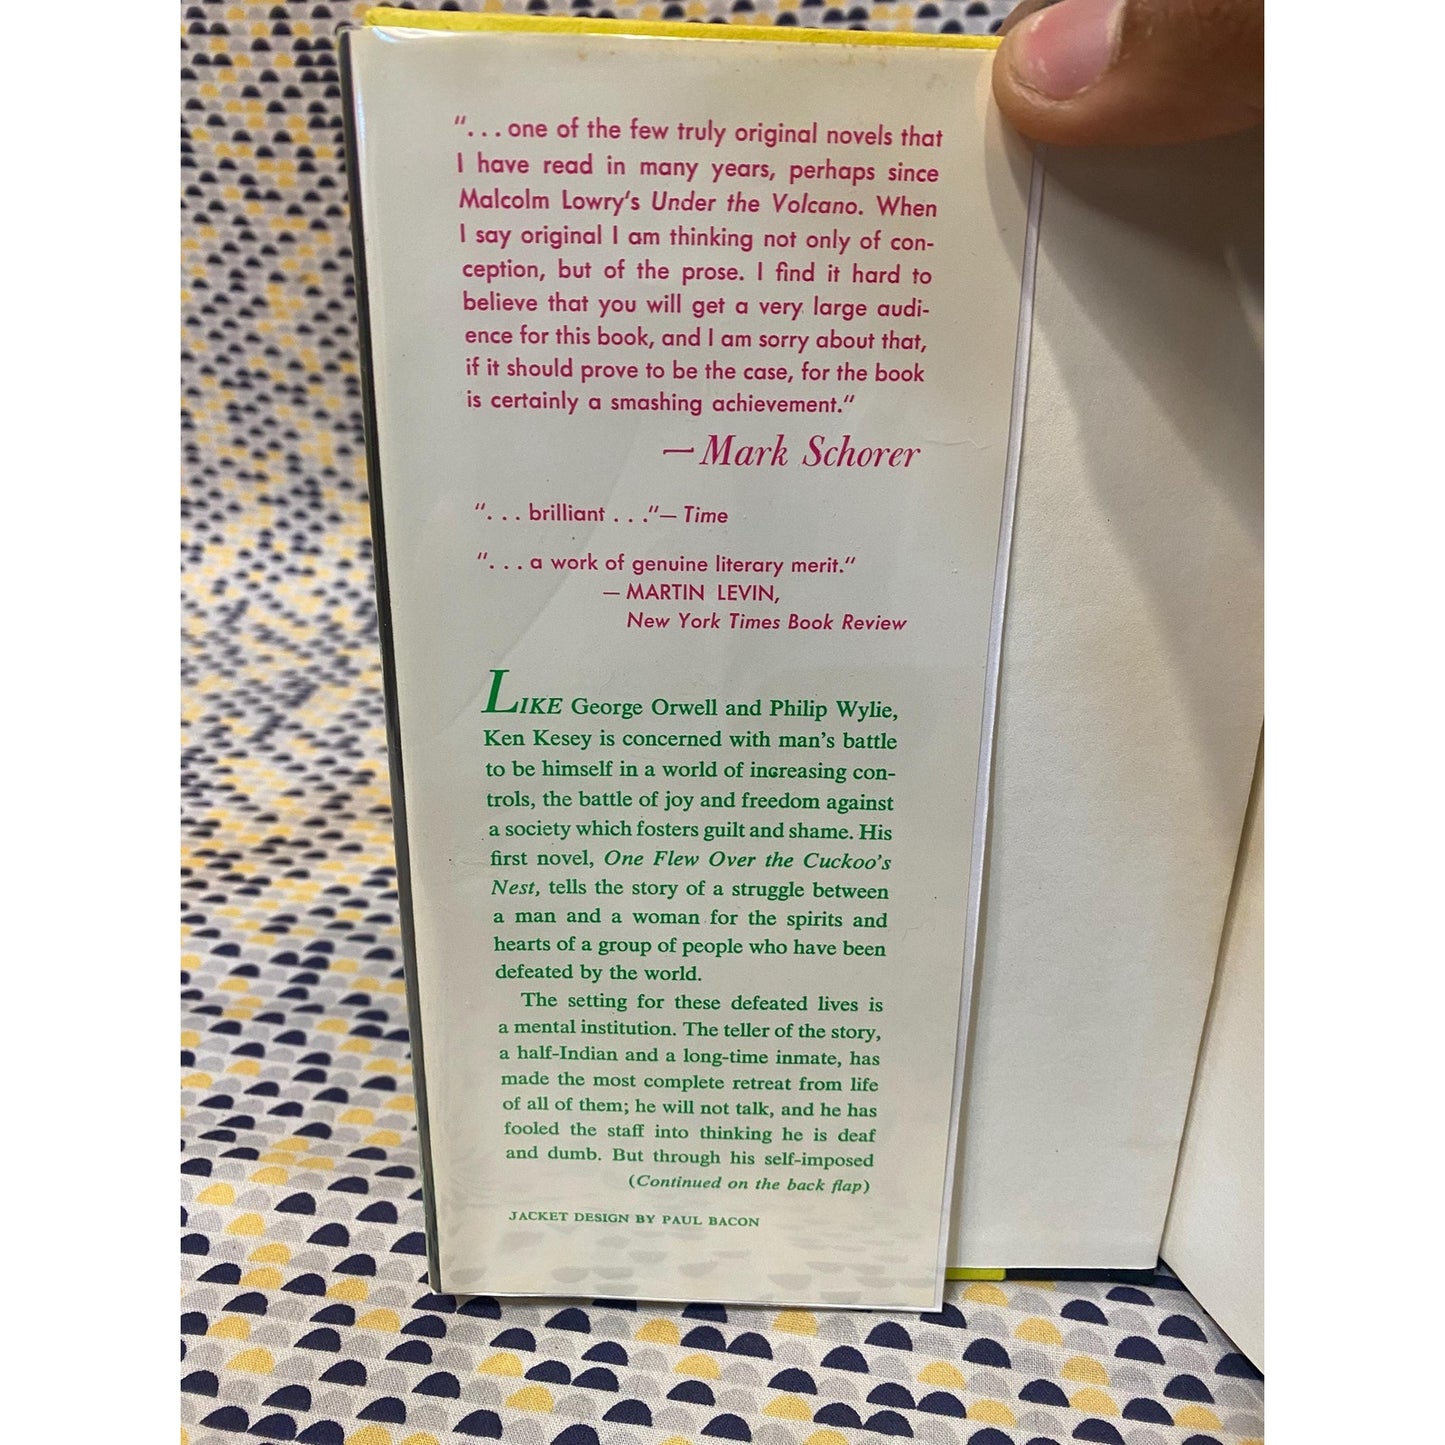 ". . . one of the few truly original novels that
I have read in many years, perhaps since
Malcolm Lowry's Under the Volcano. When
I say original I am thinking not only of con-
ception, but of the prose. I find it hard to
believe that you will get a very large audi-
ence for this book, and I am sorry about that,
if it should prove to be the case, for the book
is certainly a smashing achievement."
—Mark Schorer
". . . brilliant . . ."—Time
". . . a work of genuine literary merit."
—MARTIN LEVIN,
New York Times Book Review
LIKE George Orwell and Philip Wylie,
Ken Kesey is concerned with man's battle
to be himself in a world of increasing con-
trols, the battle of joy and freedom against
a society which fosters guilt and shame. His
first novel, One Flew Over the Cuckoo's
Nest, tells the story of a struggle between
a man and a woman for the spirits and
hearts of a group of people who have been
defeated by the world.
The setting for these defeated lives is
a mental institution. The teller of the story,
a half-Indian and a long-time inmate, has
made the most complete retreat from life
of all of them; he will not talk, and he has
fooled the staff into thinking he is deaf
and dumb. But through his self-imposed
(Continued on the back flap)
JACKET DESIGN BY PAUL BACON